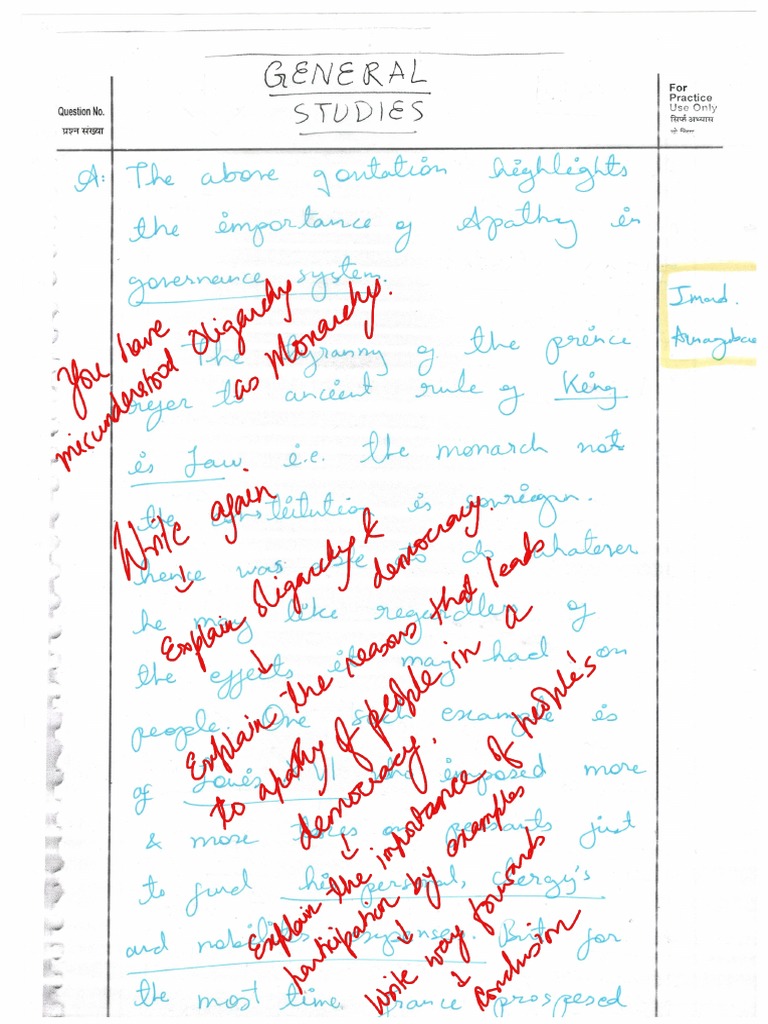 GENERAL
STUDIES
Question No.
प्रश्न संख्या
For
Practice
Use Only
सिर्फ अभ्यास
A: The above qoutation highlights
the importance of Apathy in
governance system.
Imad.
The tyranny of the prince
refer to ancient rule of King
is Law. i.e. the monarch not
the constitution is soverign.
hence was able to do whatever
he may like regardless of
the effects it may had on
people. One such example is
of Louis who imposed more
& more taxes on peasants just
to fund his personal, Clergy's
and nobilities expenses. But for
the most time france prospesed
You have
misunderstood Oligarchy
as Monarchy.
Write again
↓
Explain Oligarchy &
democracy.
↓
Explain the reasons that leads
to apathy of people in a
democracy.
↓
Explain the importance of people's
participation by examples
↓
Write way forwards
↓
conclusion